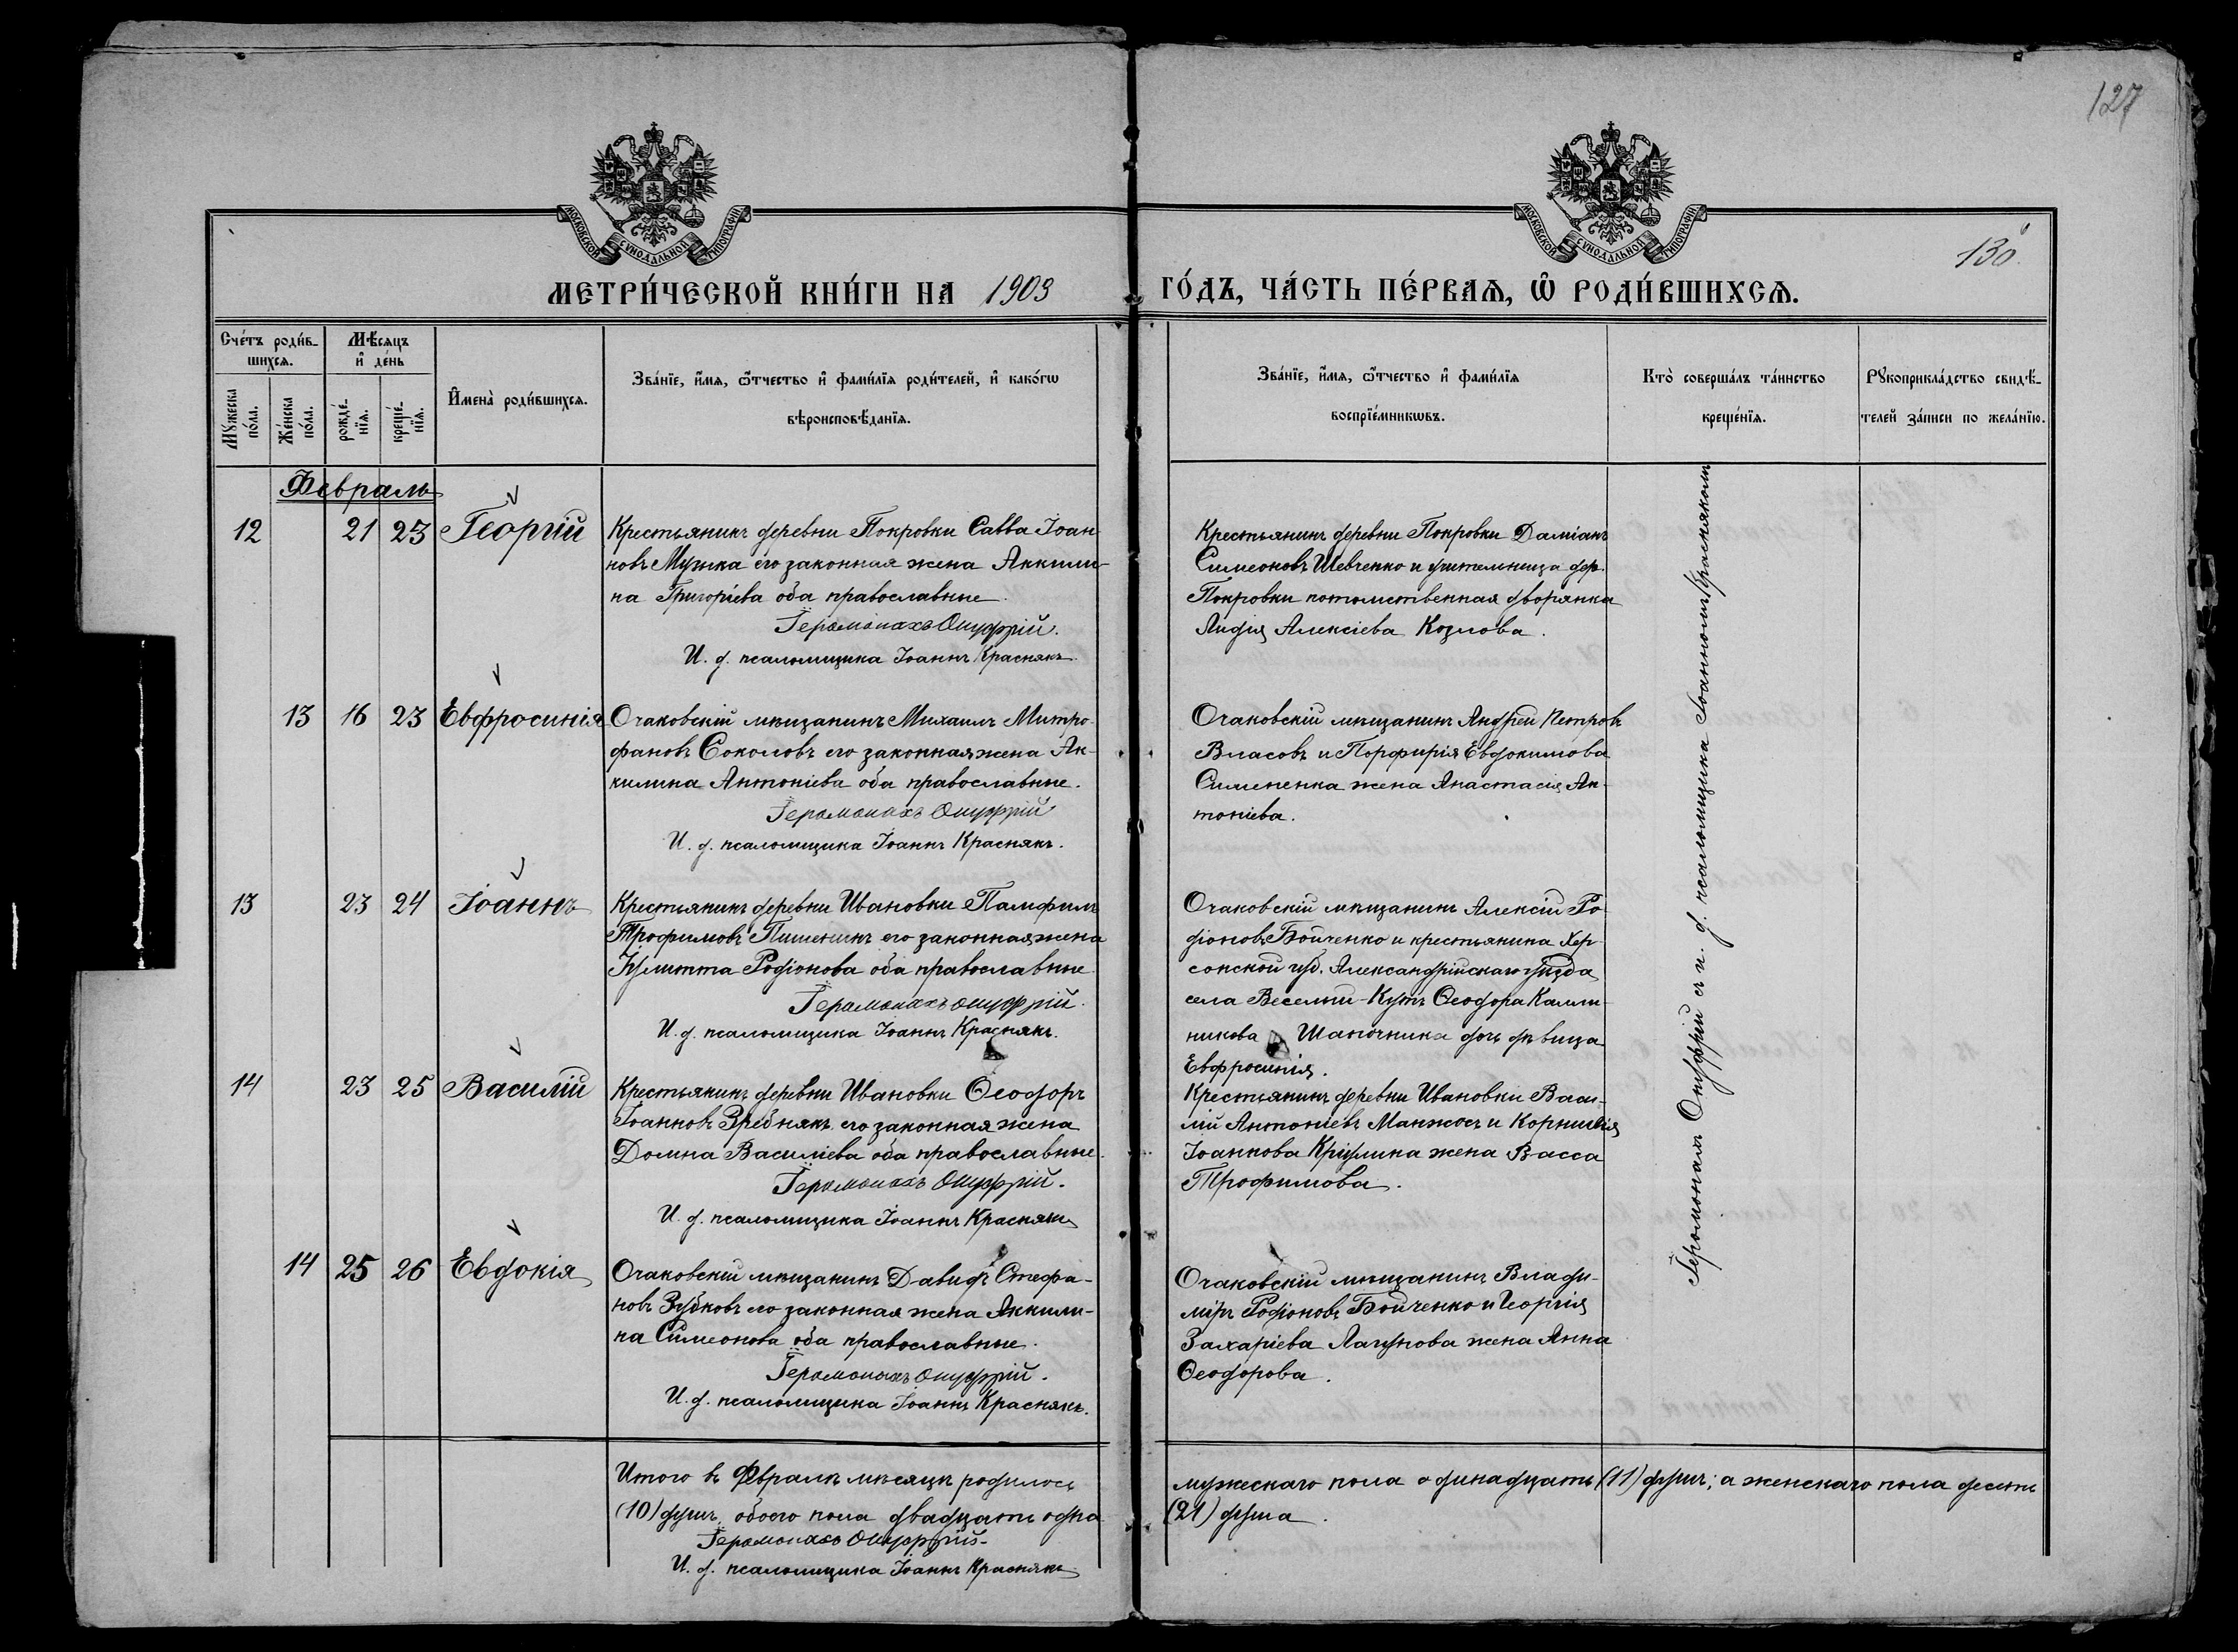 127
130
МОСКОВСКОЙ СѴНОДАЛЬНОЙ ТИПОГРАФІИ
МОСКОВСКОЙ СѴНОДАЛЬНОЙ ТИПОГРАФІИ
МЕТРИ́ЧЕСКОЙ КНИ́ГИ НА 1903 ГО́ДЪ, ЧА́СТЬ ПЕ́РВАѦ, Ѡ҆ РОДИ́ВШИХСѦ.
Сче́тъ роди́в-
шихсѧ.
Мꙋ́жеска
по́ла.
Же́нска
по́ла.
Мѣ́сѧцъ
и҆ де́нь
рожде́-
нїѧ.
креще́-
нїѧ.
И҆мена̀ роди́вшихсѧ.
Зва́нїе, и҆́мѧ, ѻ҆́тчество и҆ фами́лїѧ роди́телей, и҆ како́гѡ
вѣроисповѣ́данїѧ.
Зва́нїе, и҆́мѧ, ѻ҆́тчество и҆ фами́лїѧ
воспрїе́мникѡвъ.
Кто̀ соверша́лъ та́инство
креще́нїѧ.
Рꙋкоприкла́дство свидѣ́-
телей за́писи по жела́нїю.
Февраль
12 21 23 Георгій
Крестьянинъ деревни Покровки Савва Іоан
новъ Музыка его законная жена Аккили-
на Григоріева оба православные.
Іеромонахъ Онуфрій.
И. д. псаломщика Іоаннъ Краснякъ.
Крестьянинъ деревни Покровки Даміанъ
Симеоновъ Шевченко и учительница дер.
Покровки потомственная дворянка
Лидія Алексіева Козлова.
13 16 23 Евфросинія
Очаковскій мѣщанинъ Михаилъ Митро-
фановъ Соколовъ его законная жена Ак-
килина Антоніева оба православные.
Іеромонахъ Онуфрій
И. д. псаломщика Іоаннъ Краснякъ.
Очаковскій мѣщанинъ Андрей Петровъ
Власовъ и Порфирія Евдокимова
Симененка жена Анастасія Ан-
тоніева.
13 23 24 Іоаннъ
Крестьянинъ деревни Ивановки Памфилъ
Трофимовъ его законная жена
Іулитта Родіонова оба православные
Іеромонахъ Онуфрій.
И. д. псаломщика Іоаннъ Краснякъ.
Очаковскій мѣщанинъ Алексій Ро-
діоновъ Бойченко и крестьянина Хер-
сонской губ. Александрійскаго уѣзда
села Веселый-Кутъ Ѳеодора Калли-
никова Шапочника дочь дѣвица
Евфросинія.
14 23 25 Василій
Крестьянинъ деревни Ивановки Ѳеодоръ
Іоанновъ его законная жена
Домна Василіева оба православные.
Іеромонахъ Онуфрій.
И. д. псаломщика Іоаннъ Краснякъ
Крестьянинъ деревни Ивановки Васи-
лій Антоніевъ Манжосъ и Корнилія
Іоаннова жена Васса
Трофимова.
14 25 26 Евдокія
Очаковскій мѣщанинъ Давидъ Стефа-
новъ Зубковъ его законная жена Аккили-
на Симеонова оба православные.
Іеромонахъ Онуфрій.
И. д. псаломщика Іоаннъ Краснякъ.
Очаковскій мѣщанинъ Влади-
міръ Родіоновъ Бойченко и Георгія
Захаріева Лагунова жена Анна
Ѳеодорова.
Іеромонахъ Онуфрій съ и. д. псаломщика Іоанномъ Краснякомъ
Итого въ Февралѣ мѣсяцѣ родилось мужескаго пола одинадцать (11) душъ; а женскаго пола десять
(10) душъ, обоего пола двадцать одна (21) душа.
Іеромонахъ Онуфрій.
И. д. псаломщика Іоаннъ Краснякъ